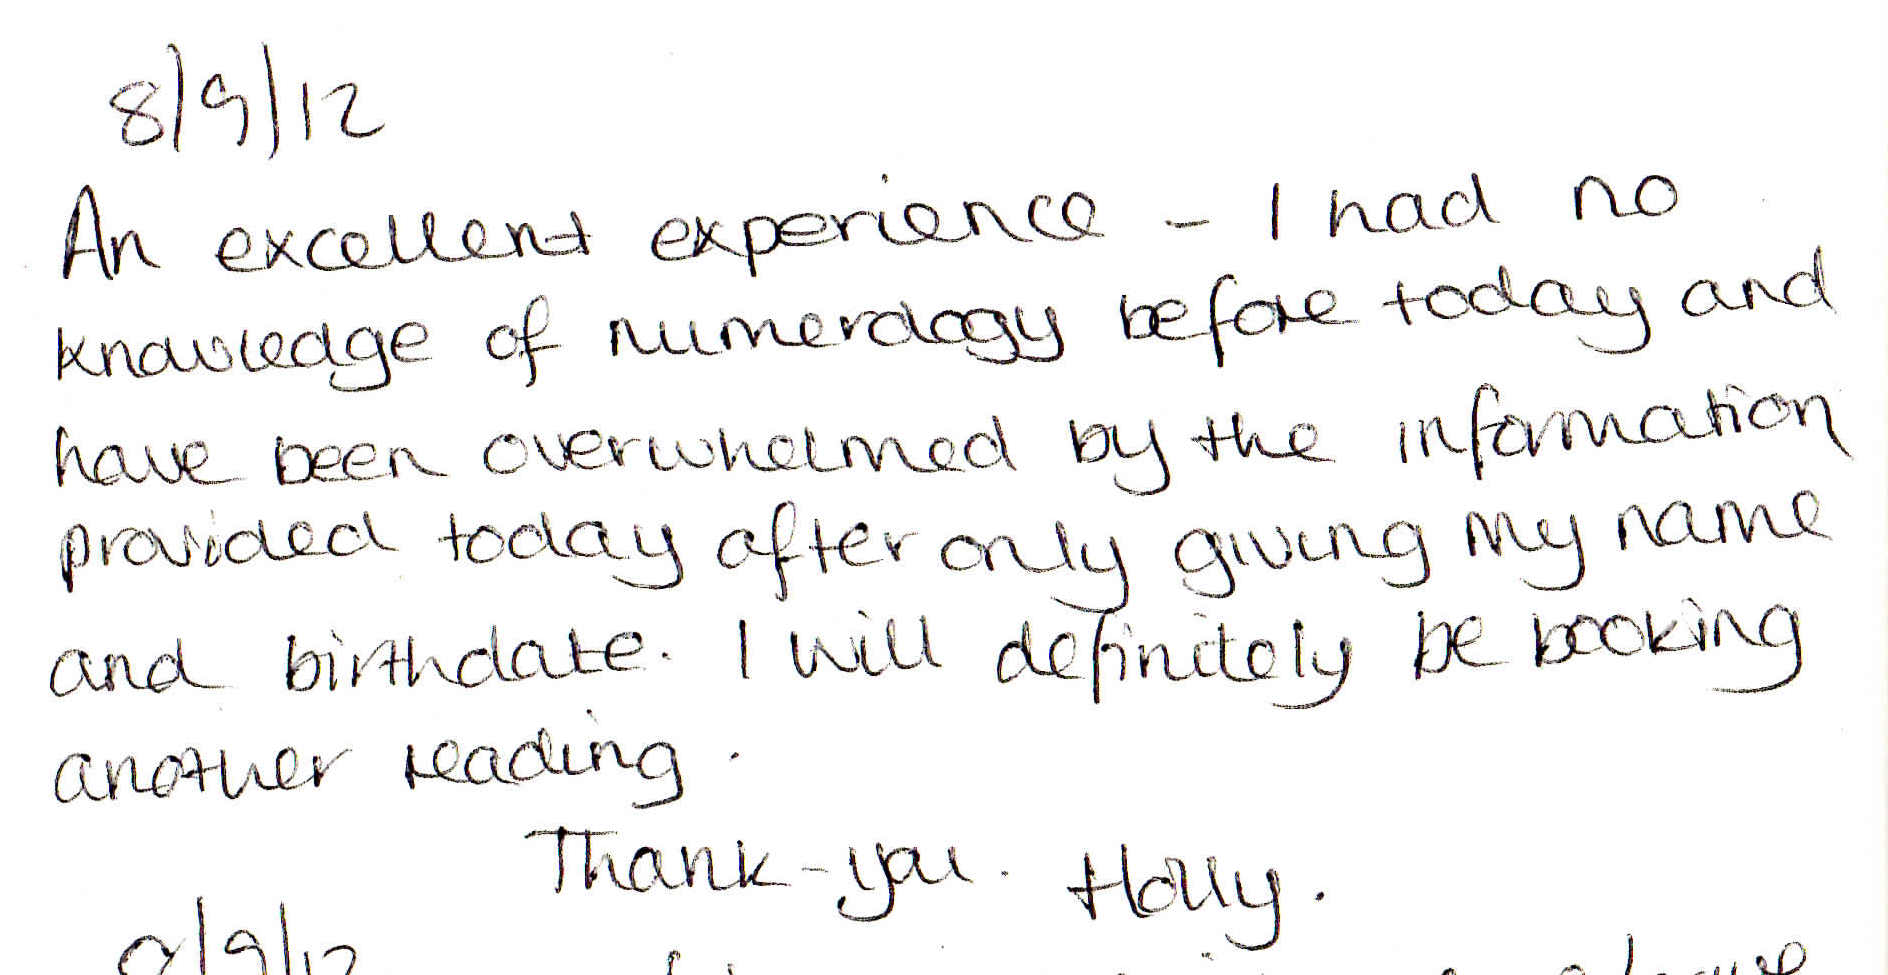 8/9/12
An excellent experience - I had no
knowledge of numerology before today and
have been overwhelmed by the information
provided today after only giving my name
and birthdate. I will definitely be booking
another reading.
Thank-you. Holly.
8/9/12